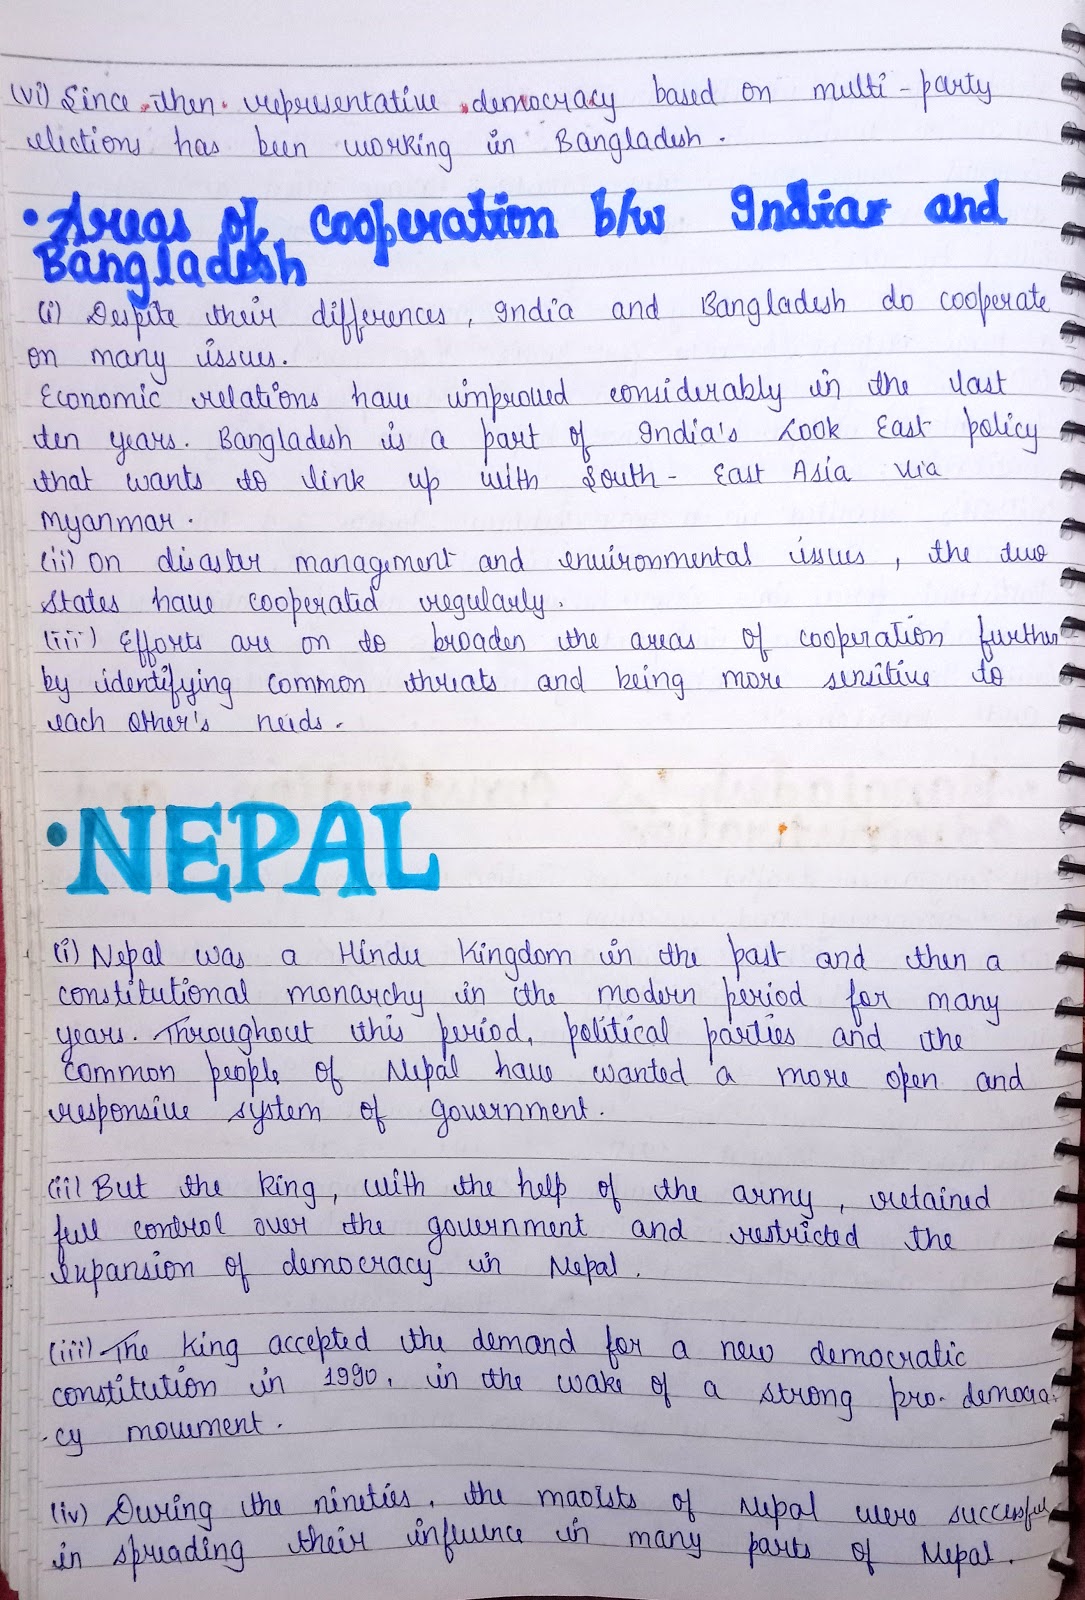 (vi) Since then representative democracy based on multi-party
elections has been working in Bangladesh.
• Areas of cooperation b/w India and
Bangladesh
(i) Despite their differences, India and Bangladesh do cooperate
on many issues.
Economic relations have improved considerably in the last
ten years. Bangladesh is a part of India's Look East policy
that wants to link up with South-East Asia via
Myanmar.
(ii) On disaster management and environmental issues, the two
states have cooperated regularly.
(iii) Efforts are on to broaden the areas of cooperation further
by identifying common threats and being more sensitive to
each other's needs.
• NEPAL
(i) Nepal was a Hindu Kingdom in the past and then a
constitutional monarchy in the modern period for many
years. Throughout this period, political parties and the
common people of Nepal have wanted a more open and
responsive system of government.
(ii) But the king, with the help of the army, retained
full control over the government and restricted the
expansion of democracy in Nepal.
(iii) The king accepted the demand for a new democratic
constitution in 1990, in the wake of a strong pro-democra-
-cy movement.
(iv) During the nineties, the maoists of Nepal were successful
in spreading their influence in many parts of Nepal.